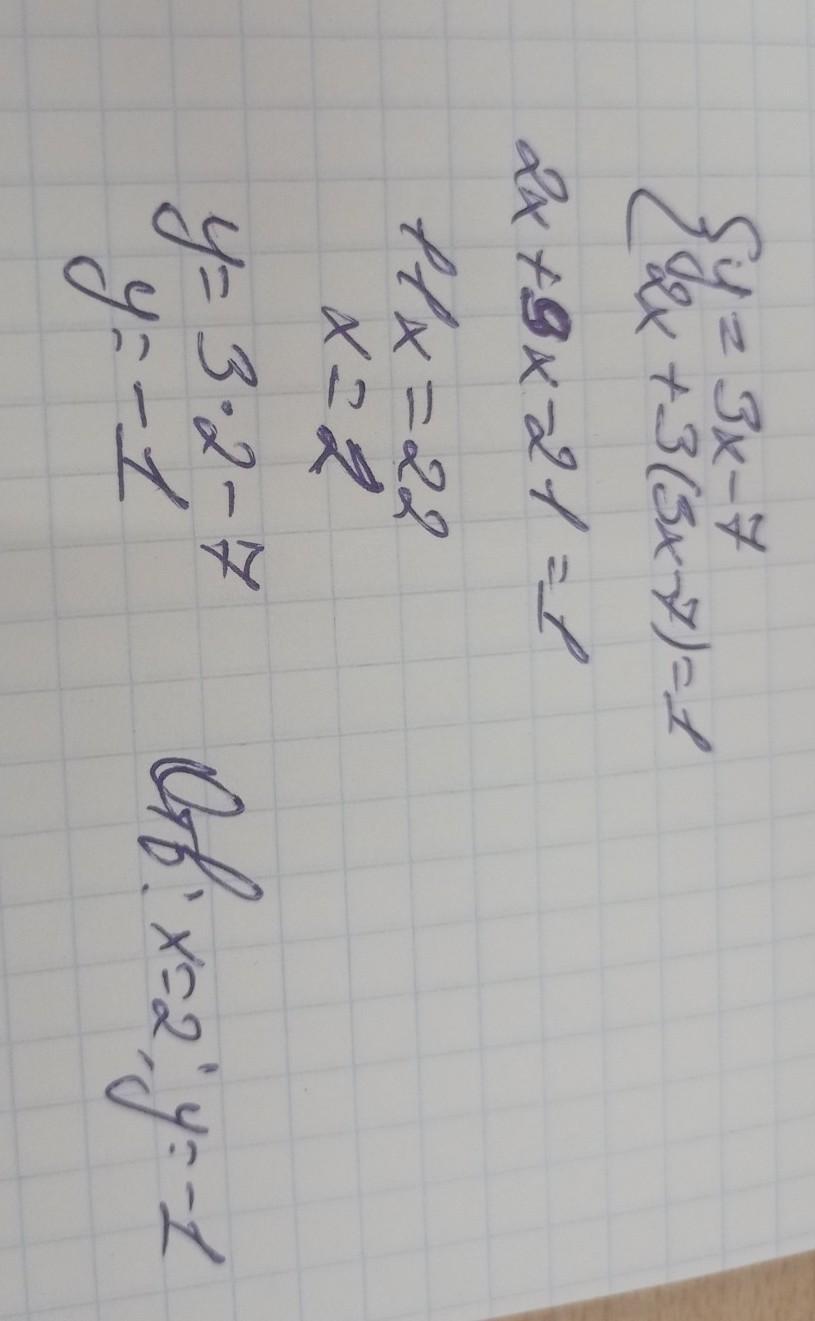 { y = 3x - 7
2x + 3(3x-7) = 1
2x + 9x - 21 = 1
11x = 22
x = 2
y = 3·2 - 7
y = -1
Отв: x=2; y=-1